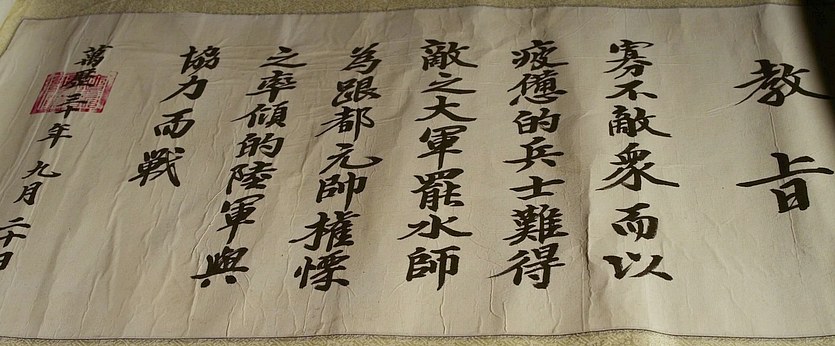 教旨
寡不敵衆而以
疲憊的兵士難得
敵之大軍罷水師
為跟都元帥權慄
之率傾的陸軍與
協力而戰
萬曆三十年九月二十日